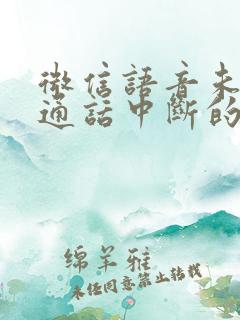 微信語音未
通話中斷的
绵羊雅
未经同意禁止转载